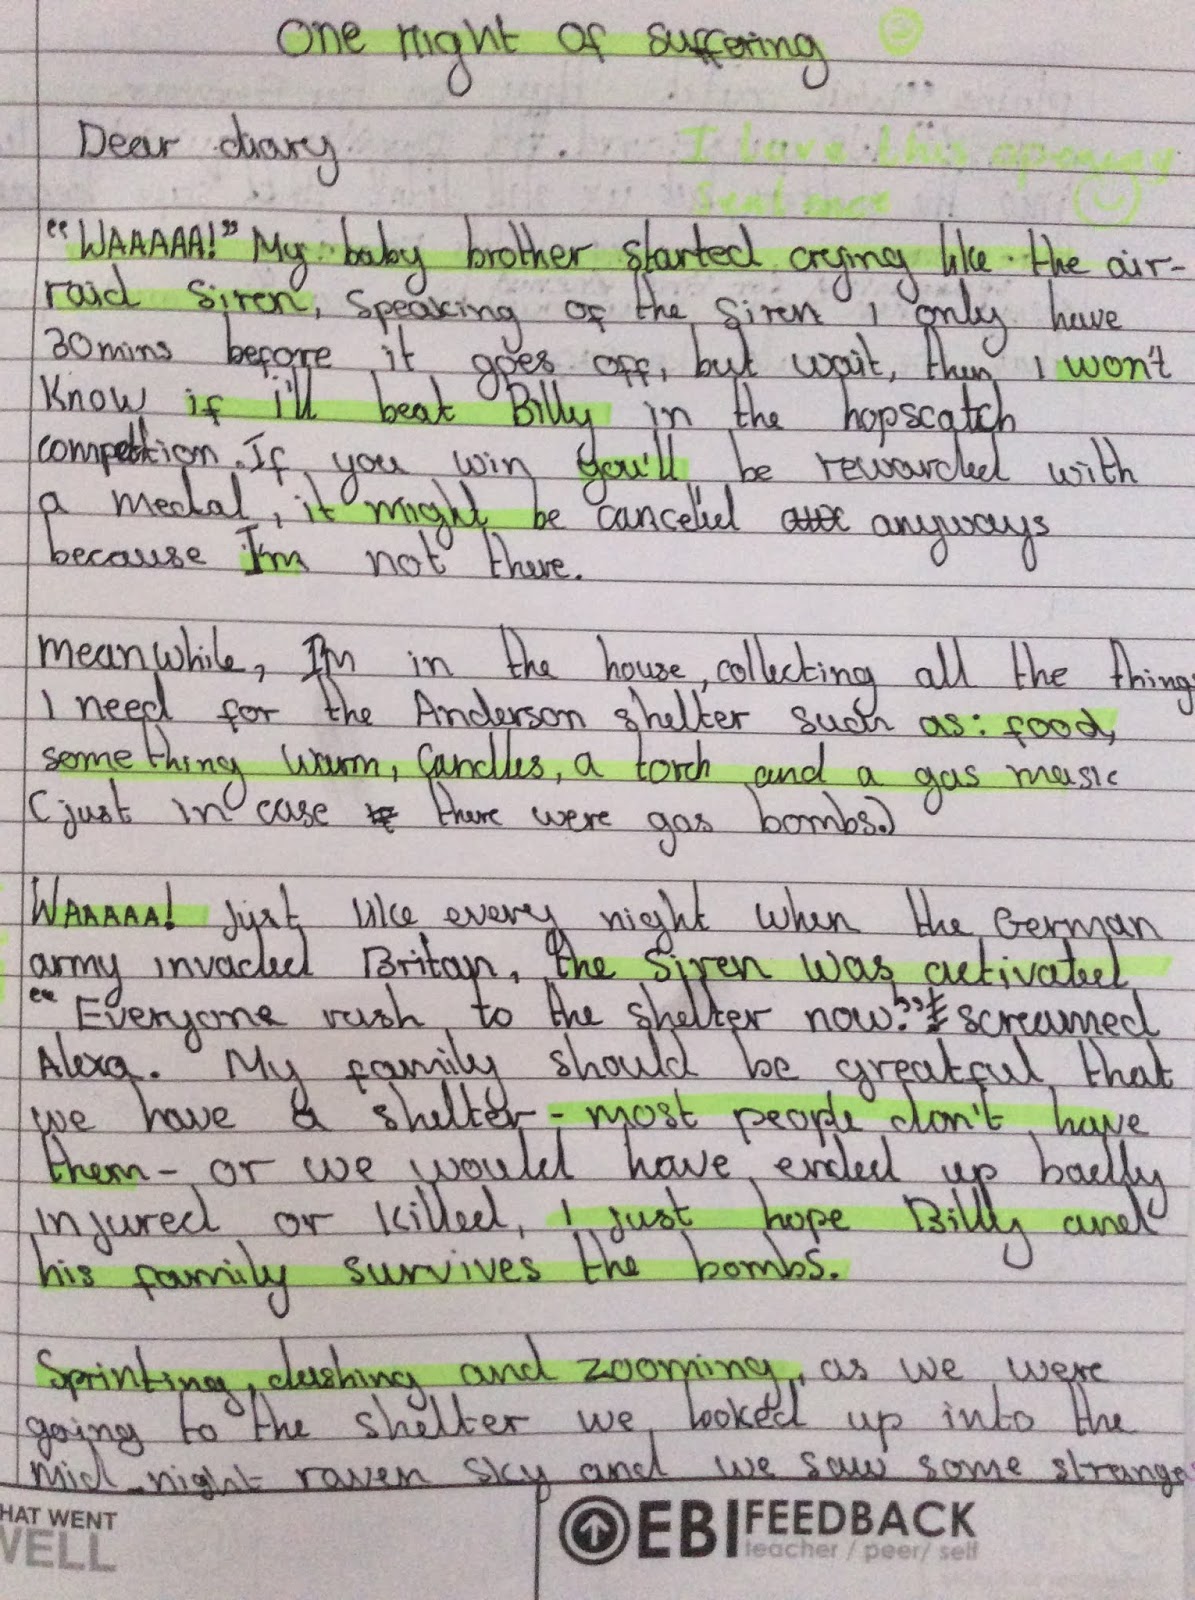 One night of suffering
Dear diary
I love this opening
sentence
"WAAAAA!" My baby brother started crying like the air-
raid siren, speaking of the siren I only have
30mins before it goes off, but wait, then I won't
know if i'll beat Billy in the hopscatch
competition. If you win you'll be rewarded with
a medal, it might be canceled anyways
because I'm not there.
Meanwhile, I'm in the house, collecting all the things
I need for the Anderson shelter such as: food,
something warm, candles, a torch and a gas masic
(just in case there were gas bombs.)
WAAAAA! Just like every night when the German
army invaded Britan, the siren was activated
"Everyone rush to the shelter now!" screamed
Alexa. My family should be greatful that
we have a shelter - most people don't have
them - or we would have ended up badly
injured or killed, I just hope Billy and
his family survives the bombs.
Sprinting, dashing and zooming, as we were
going to the shelter we looked up into the
mid-night raven sky and we saw some strange
HAT WENT
WELL
EBI FEEDBACK
teacher / peer/ self